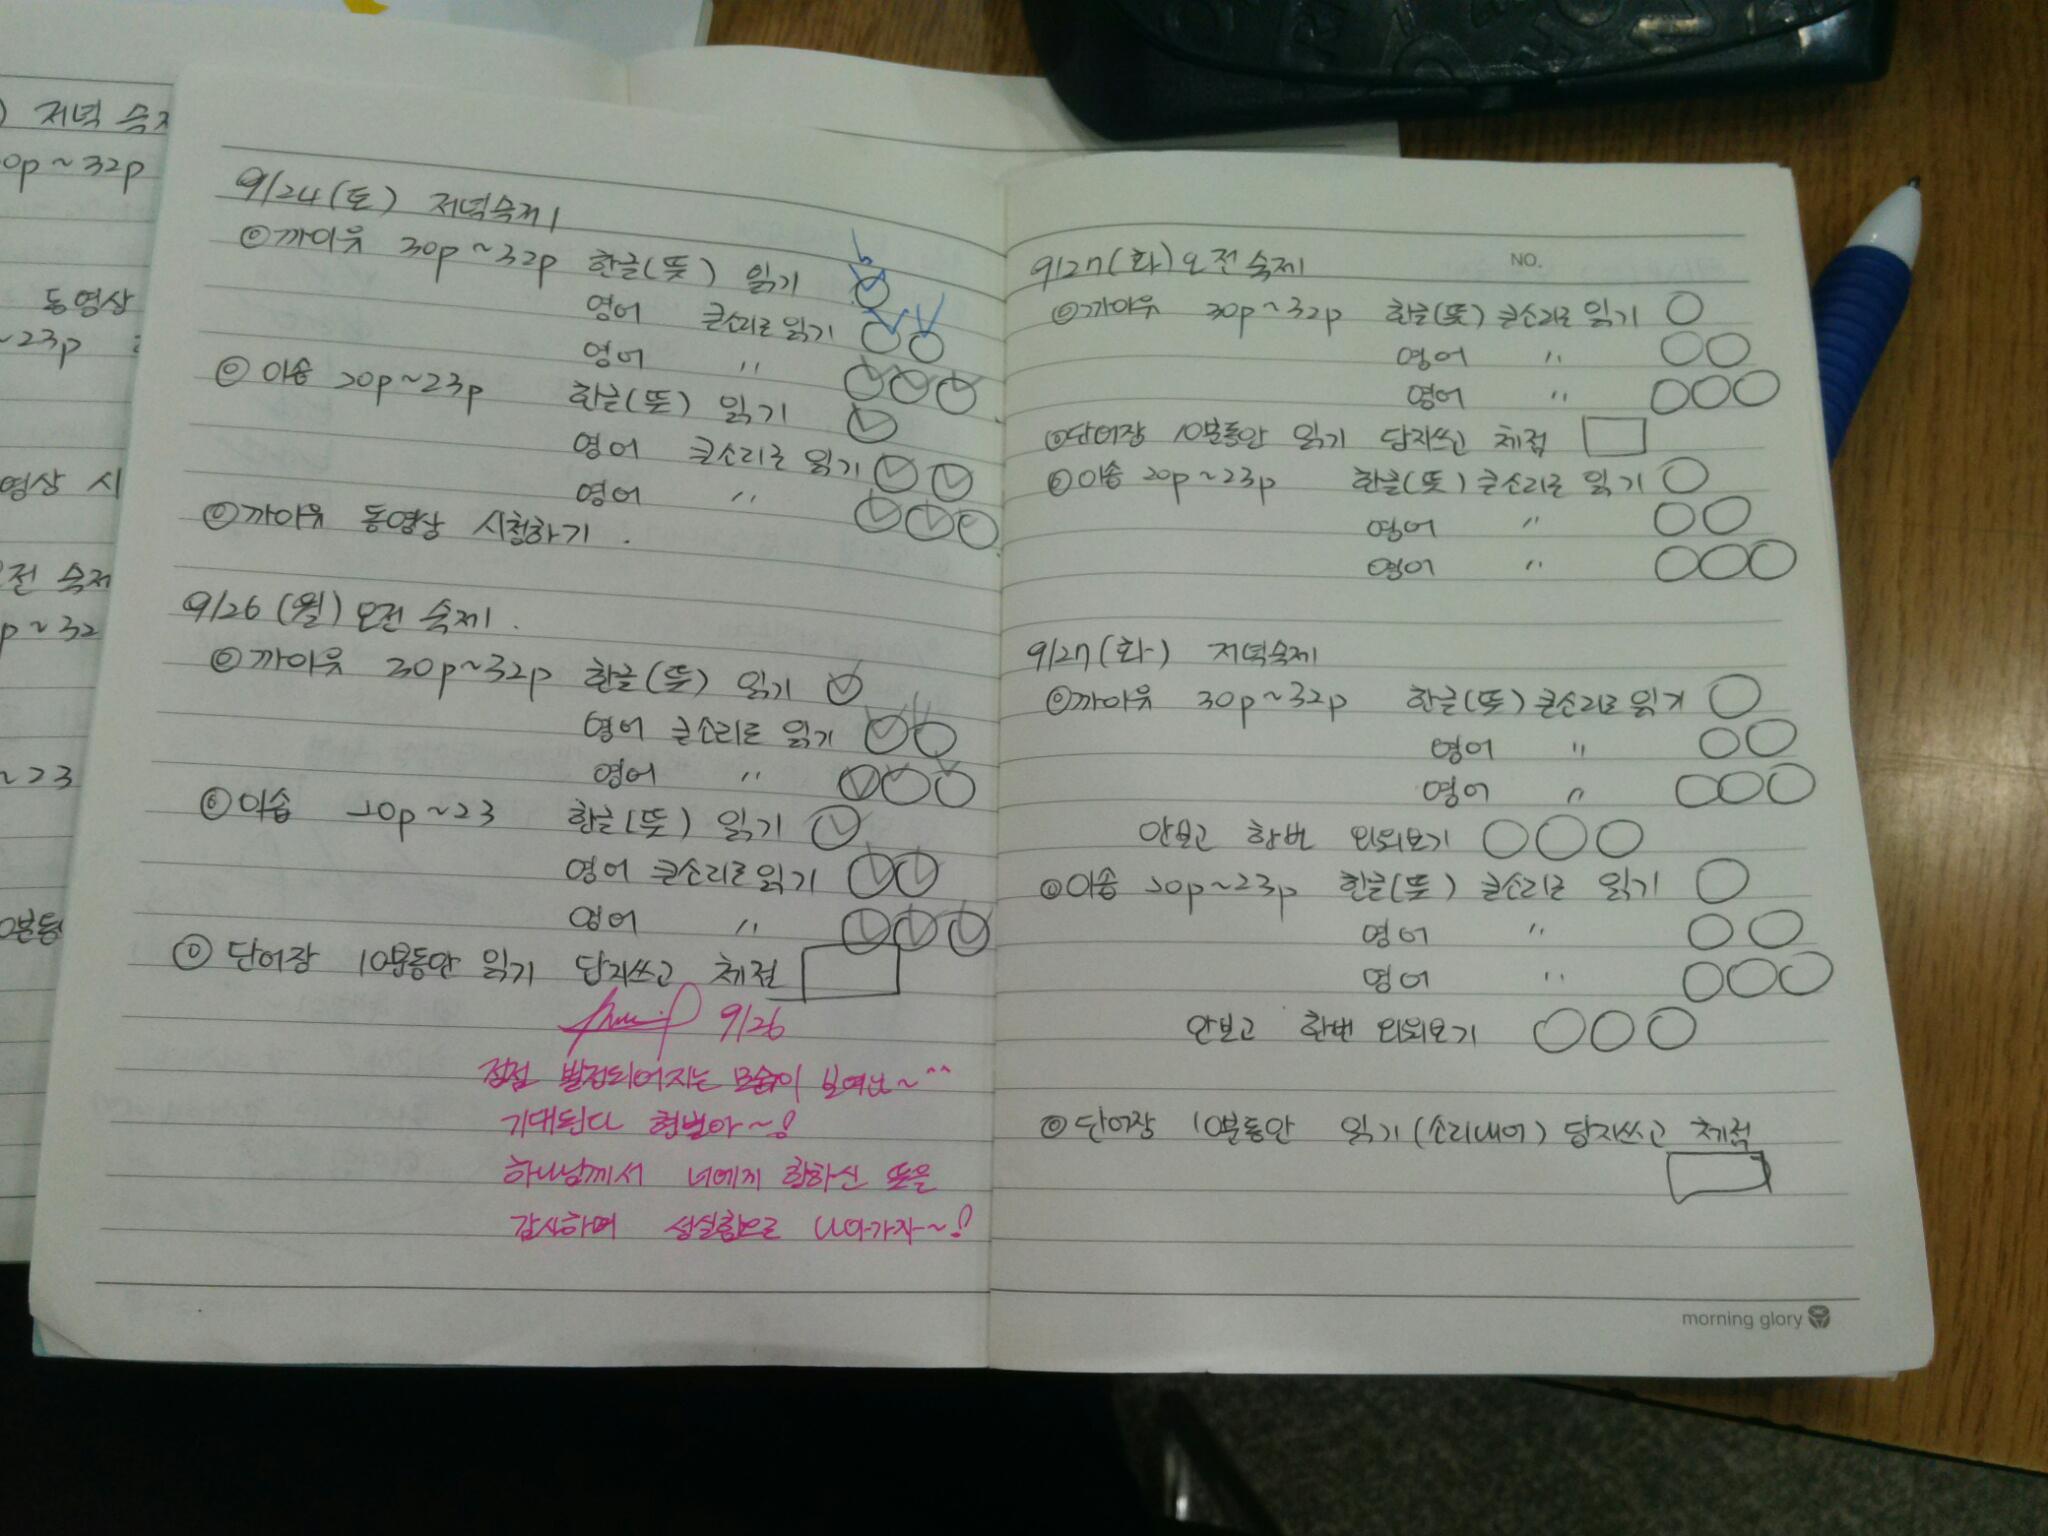 ) 저녁 숙제
0p ~ 32p
동영상
~23p
영상 시
전 숙제
p ~ 32
~ 23
0분동
9/24 (토) 저녁숙제
◎까이유 30p ~ 32p 한글(뜻) 읽기
영어 큰소리로 읽기
영어 〃
◎ 이솝 20p ~ 23p 한글(뜻) 읽기
영어 큰소리로 읽기
영어 〃
◎까이유 동영상 시청하기 .
9/26 (월) 오전 숙제 .
◎까이유 30p ~ 32p 한글(뜻) 읽기
영어 큰소리로 읽기
영어 〃
◎이솝 20p ~ 23 한글(뜻) 읽기
영어 큰소리로 읽기
영어 〃
◎ 단어장 10분동안 읽기 답지쓰고 체점
9/26
점점 발전되어지는 모습이 보여난~^^
기대된다 형범아~!
하나님께서 너에게 향하신 뜻을
감사하며 성실함으로 나아가자~!
NO.
9/27 (화) 오전 숙제
◎까이유 30p ~ 32p 한글(뜻) 큰소리로 읽기
영어 〃
영어 〃
◎단어장 10분동안 읽기 답지쓰고 체점
◎이솝 20p ~ 23p 한글(뜻) 큰소리로 읽기
영어 〃
영어 〃
9/27 (화) 저녁숙제
◎까이유 30p ~ 32p 한글(뜻) 큰소리로 읽기
영어 〃
영어 〃
안보고 한번 외워보기
◎이솝 20p ~ 23p 한글(뜻) 큰소리로 읽기
영어 〃
영어 〃
안보고 한번 외워보기
◎ 단어장 10분동안 읽기 (소리내어) 답지쓰고 체점
morning glory